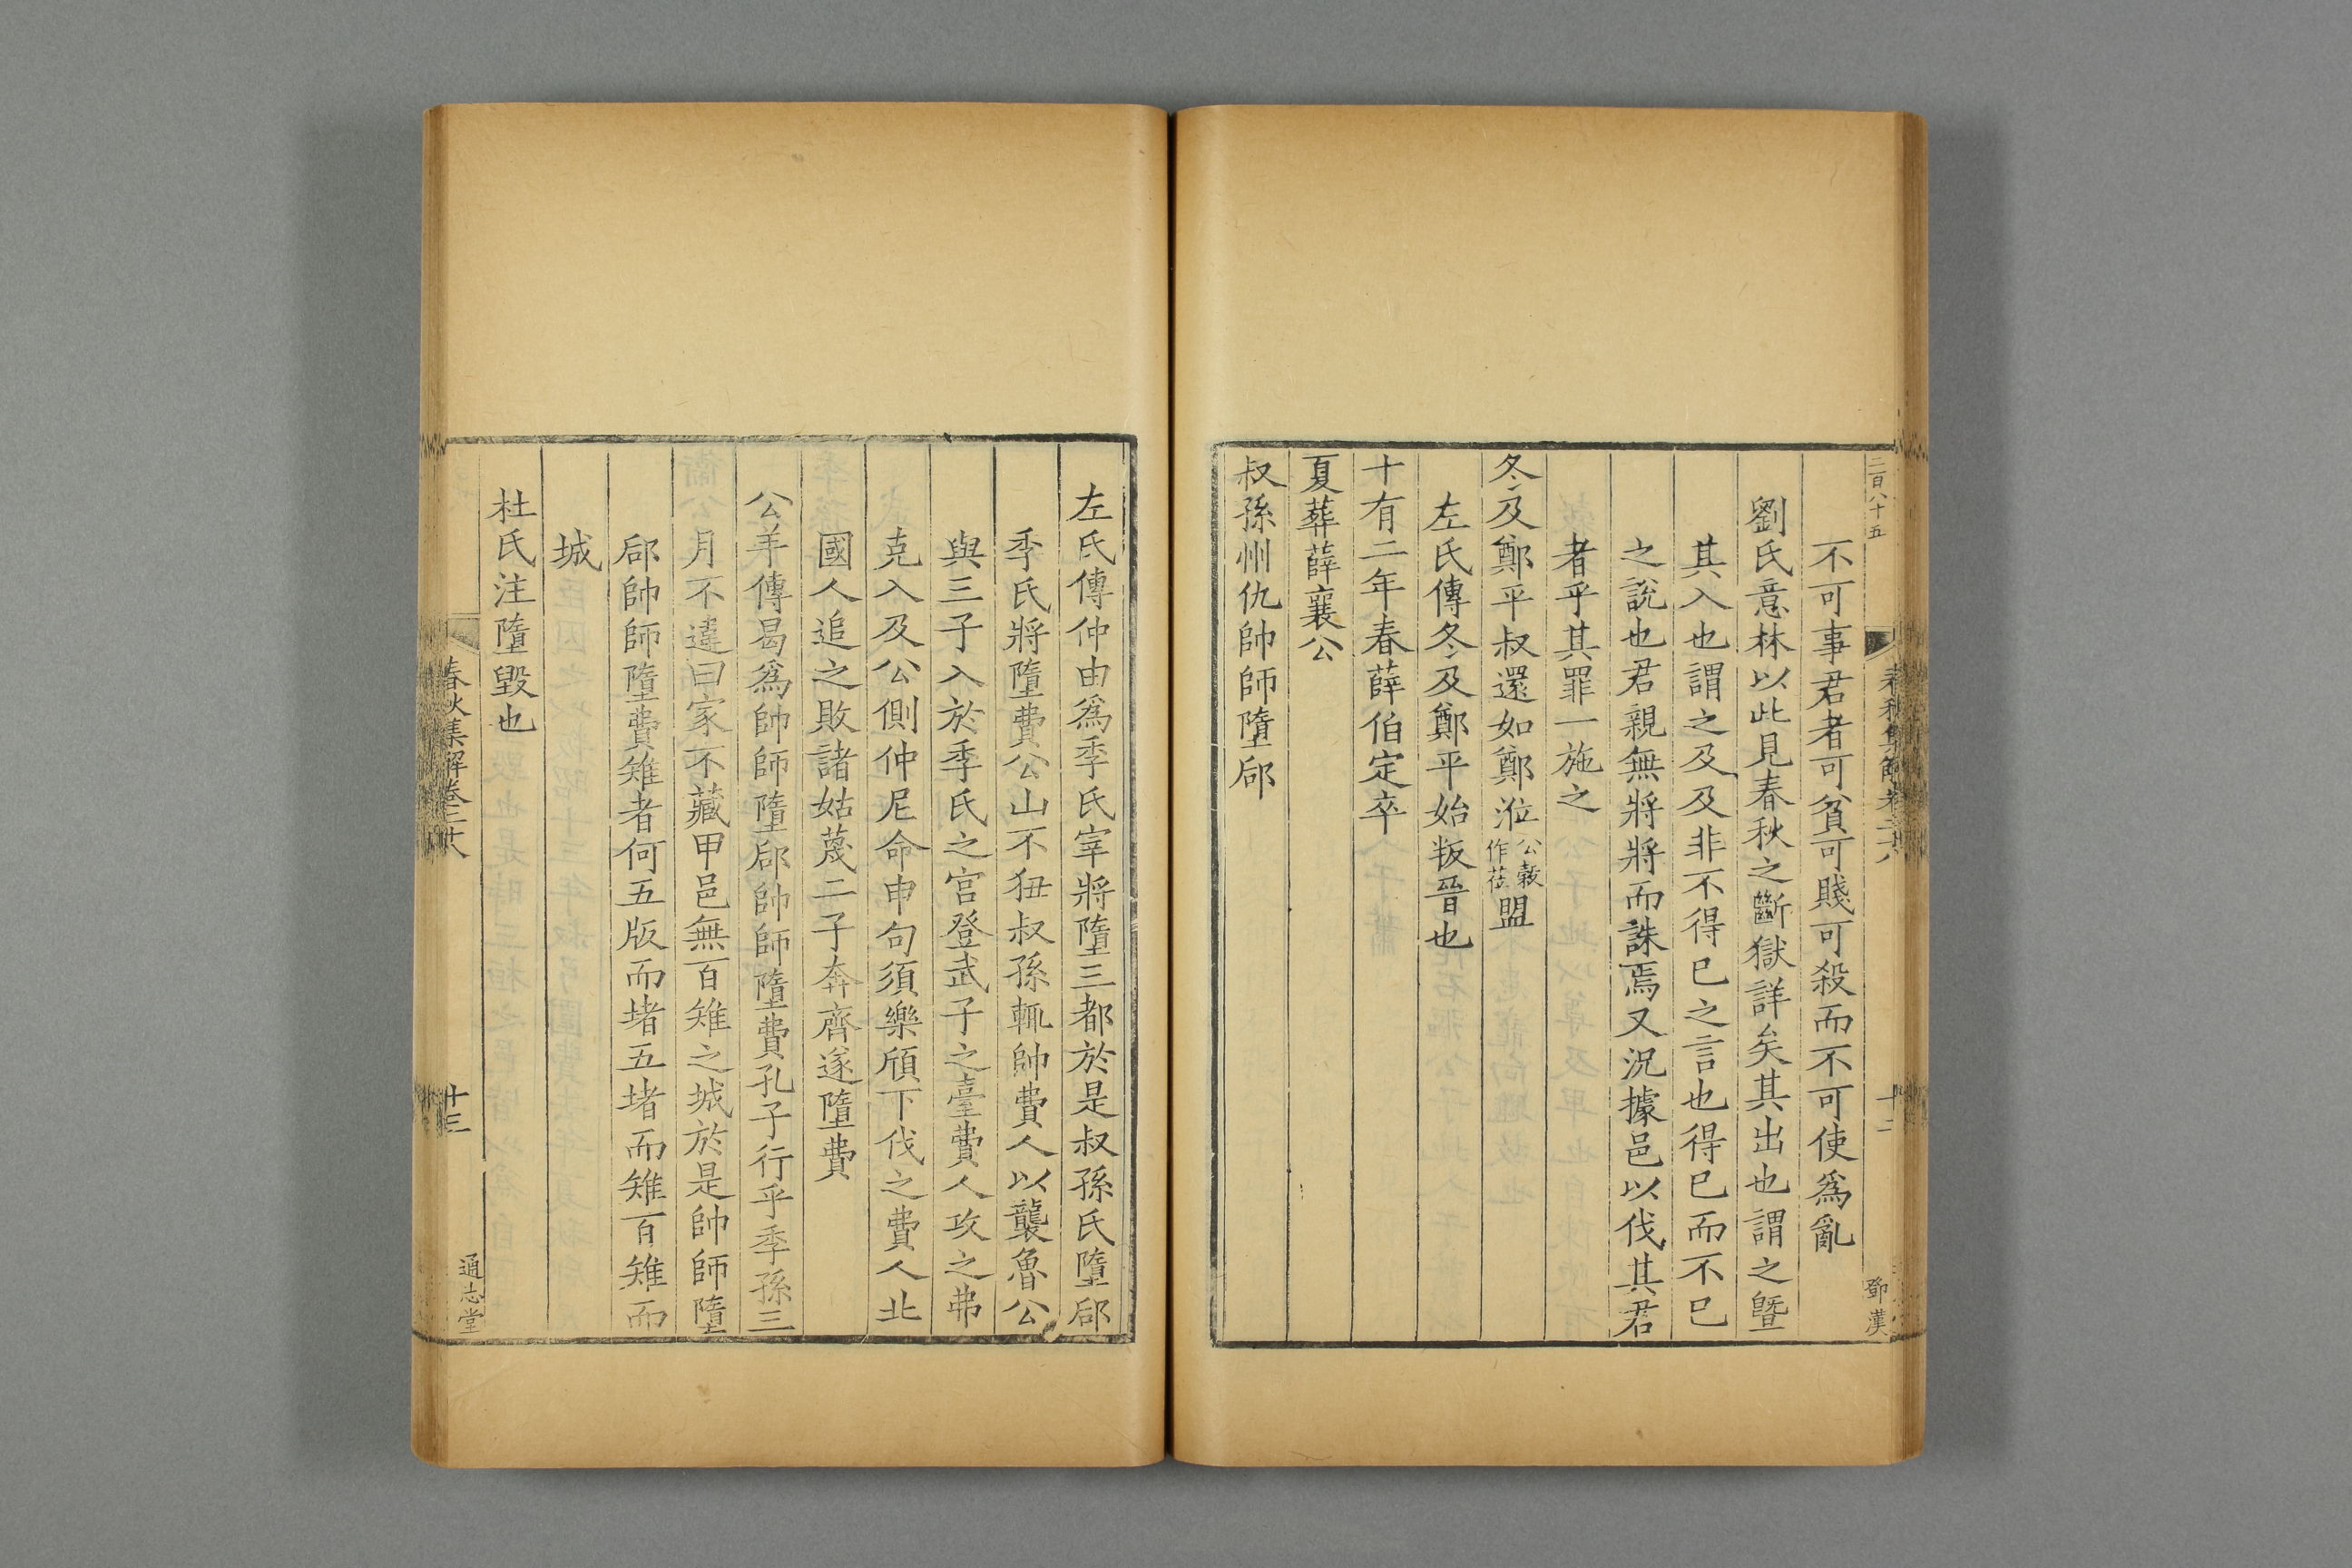 二百八十五
春秋集解卷二十八
十二
鄧漢
不可事君者可貧可賤可殺而不可使爲亂
劉氏意林以此見春秋之斷獄詳矣其出也謂之曁
其入也謂之及及非不得已之言也得已而不已
之說也君親無將將而誅焉又況據邑以伐其君
者乎其罪一施之
冬及鄭平叔還如鄭涖公穀作莅盟
左氏傳冬及鄭平始叛晉也
十有二年春薛伯定卒
夏葬薛襄公
叔孫州仇帥師墮郈
左氏傳仲由爲季氏宰將墮三都於是叔孫氏墮郈
季氏將墮費公山不狃叔孫輒帥費人以襲魯公
與三子入於季氏之宮登武子之臺費人攻之弗
克入及公側仲尼命申句須樂頎下伐之費人北
國人追之敗諸姑蔑二子奔齊遂墮費
公羊傳曷爲帥師墮郈帥師墮費孔子行乎季孫三
月不違曰家不藏甲邑無百雉之城於是帥師墮
郈帥師墮費雉者何五版而堵五堵而雉百雉而
城
杜氏注墮毀也
春秋集解卷二十八
十三
通志堂